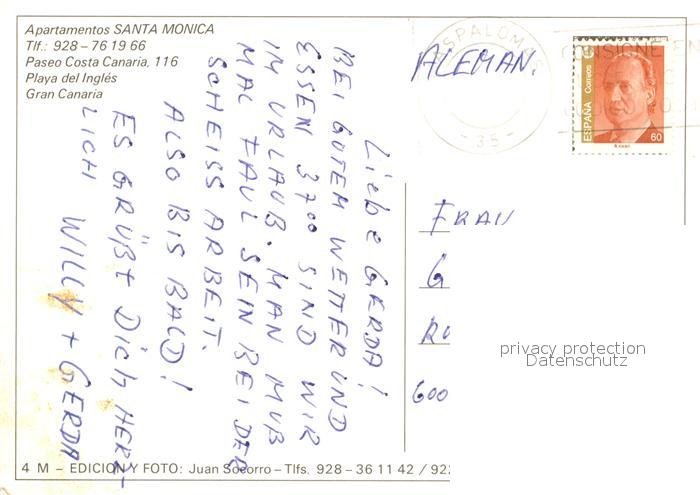 Apartamentos SANTA MONICA
Tlf.: 928 - 76 19 66
Paseo Costa Canaria, 116
Playa del Inglés
Gran Canaria
ALEMAN.
ESPAÑA Correos
60
- 35 -
LiebE GERDA!
BEI GUTEM WETTER UND
ESSEN 37°° SIND WIR
IM URLAUB. MAN MUß
MAL FAUL SEIN BEI DER
SCHEISS ARBEIT.
ALSO BIS BALD!
ES GRÜßt DICH HERZ-
LICH WILLY + GERDA
FRAU
G
RU
600
privacy protection
Datenschutz
4 M – EDICION Y FOTO: Juan Socorro – Tlfs. 928 – 36 11 42 / 92